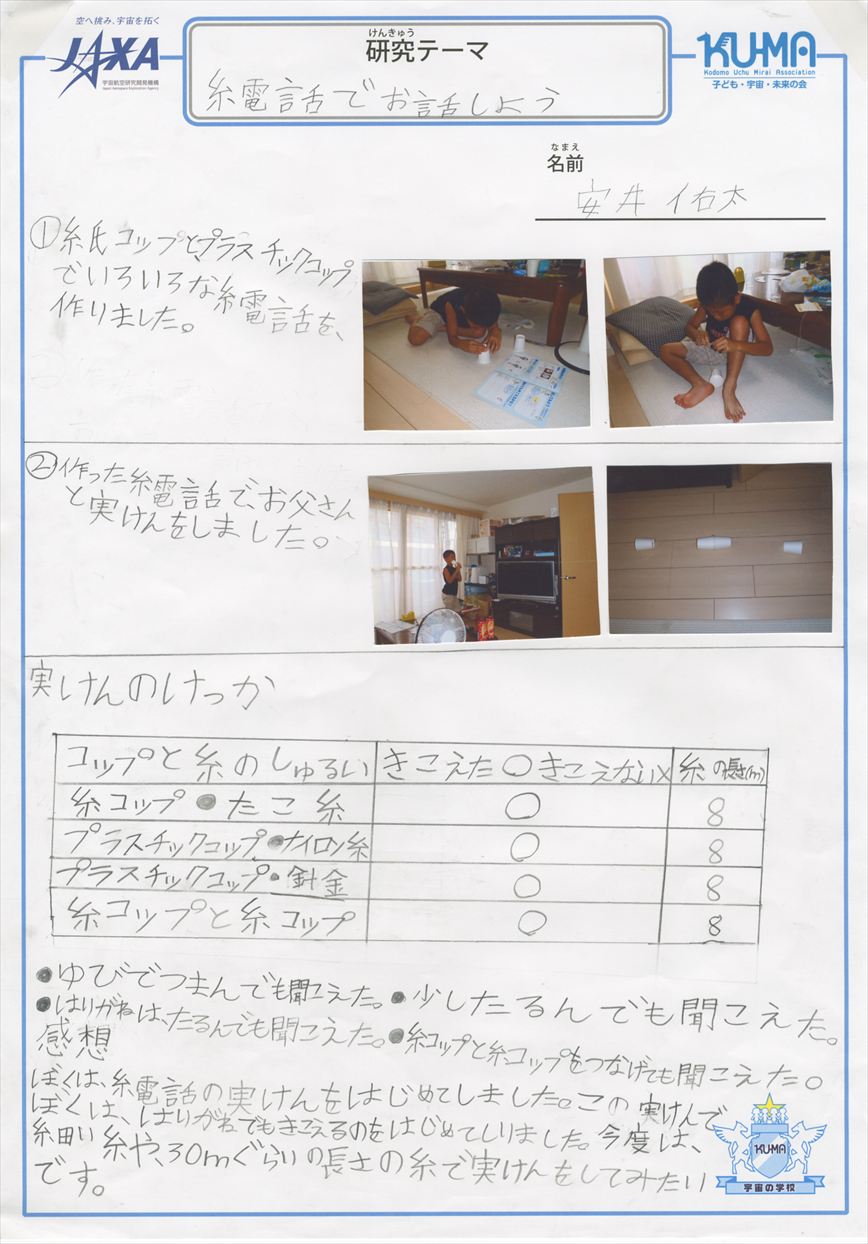 空へ挑み、宇宙を拓く
JAXA
宇宙航空研究開発機構
Japan Aerospace Exploration Agency
けんきゅう
研究テーマ
糸電話でお話しよう
KU-MA
Kodomo Uchu Mirai Association
子ども・宇宙・未来の会
なまえ
名前
安井佑太
①紙コップとプラスチックコップ
でいろいろな糸電話を、
作りました。
②作った糸電話で、お父さん
と実けんをしました。
実けんのけっか
コップと糸のしゅるい きこえた〇きこえない× 糸の長さ(m)
糸コップ・たこ糸 〇 8
プラスチックコップ・ナイロン糸 〇 8
プラスチックコップ・針金 〇 8
糸コップと糸コップ 〇 8
●ゆびでつまんでも聞こえた。●少したるんでも聞こえた。
●はりがねは、たるんでも聞こえた。●糸コップと糸コップをつなげても聞こえた。
感想
ぼくは、糸電話の実けんをはじめてしました。この実けんで
ぼくは、はりがねでもきこえるのをはじめてしりました。今度は、
細い糸や、30mぐらいの長さの糸で実けんをしてみたい
です。
KU-MA
宇宙の学校